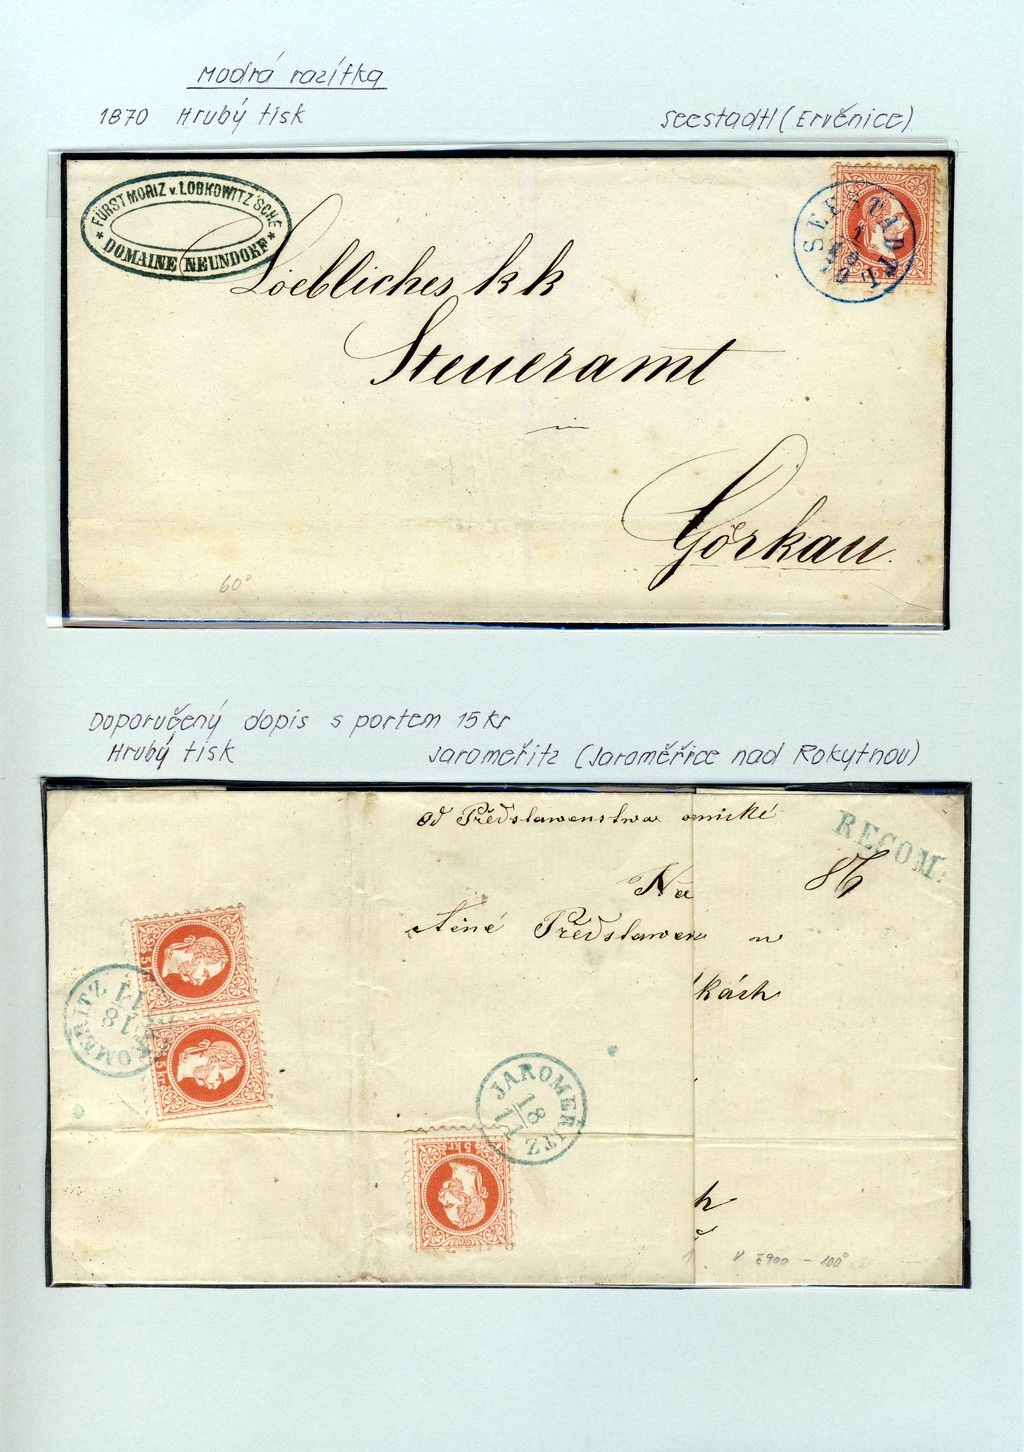 Modrá razítka
1870 Hrubý tisk
Seestadtl (Ervěnice)
* FÜRST MORIZ v. LOBKOWITZ'SCHE *
DOMAINE NEUNDORF
SEESTADTL
1
70
Loebliches kk
Steueramt
in
Görkau.
60°
Doporučený dopis s portem 15 kr
Hrubý tisk
Jaromeřitz (Jaroměřice nad Rokytnou)
od Předslawenstwa
RECOM:
86
Na
Předslawen
kách
5 kr
5 kr
JAROMEŘITZ
18
11
JAROMEŘITZ
18
11
5 kr
h
100°